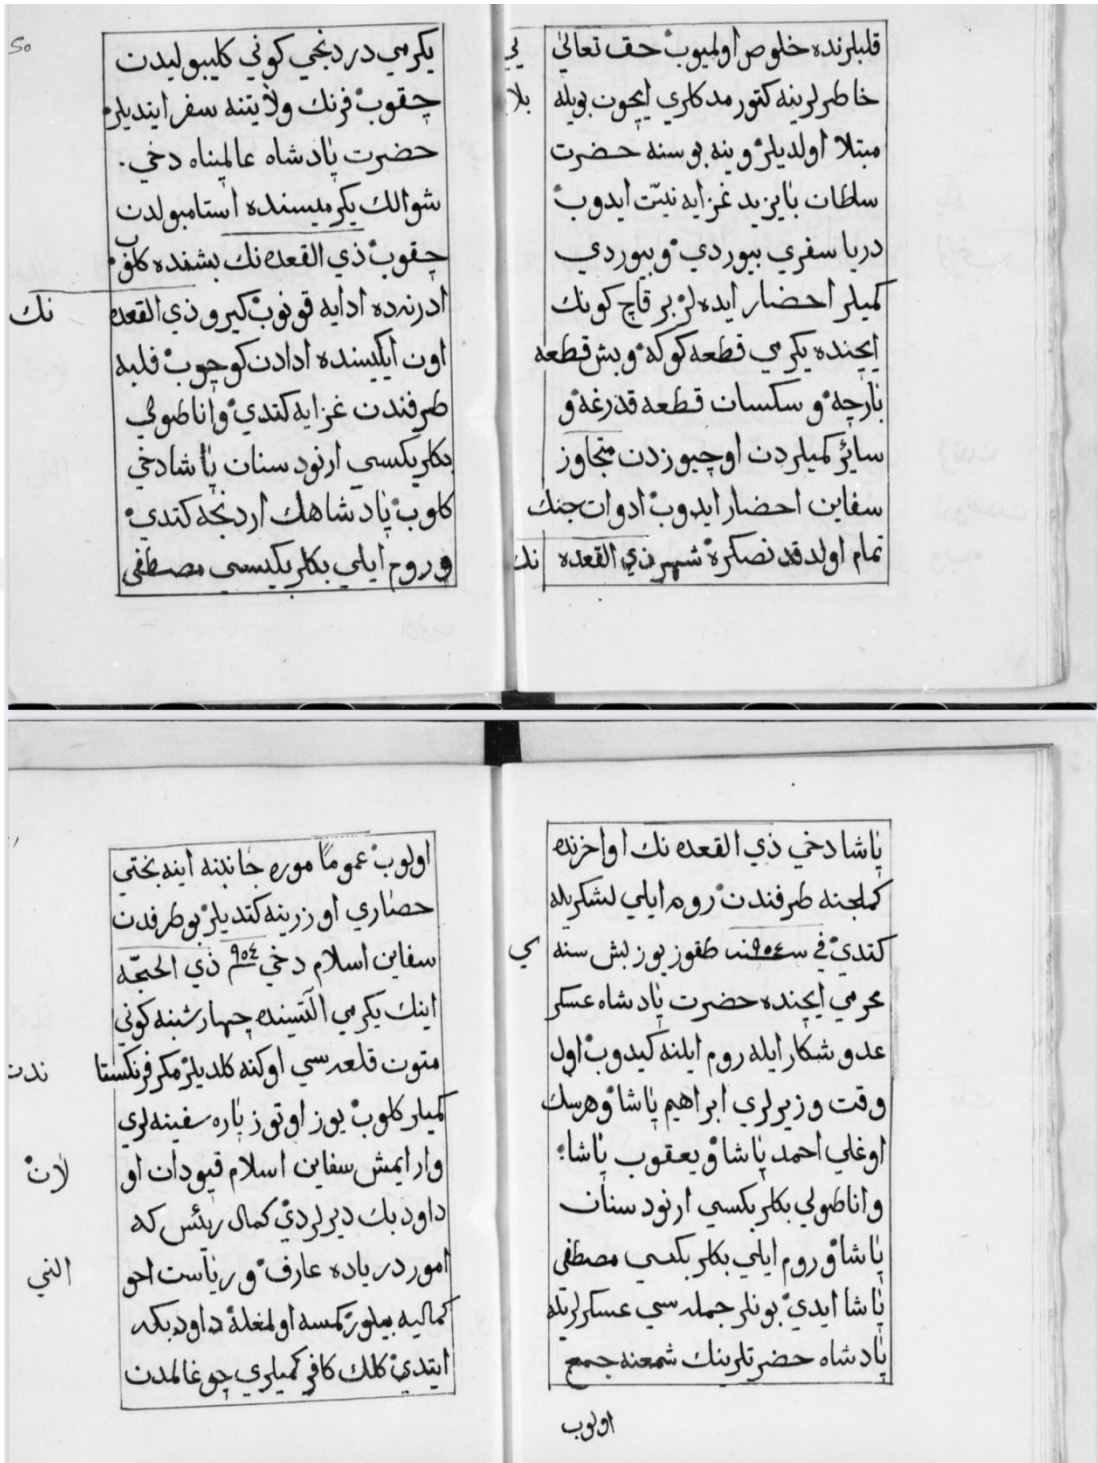 قلبلرنده خلوص اولميوب حق تعالى يي
خاطرلرينه كتورمدكلري ايچون بويله بلا
مبتلا اولديلر وينه بو سنه حضرت
سلطان بايزيد غزايه نيّت ايدوب
دريا سفري بيوردي وبيوردي
كميلر احضار ايده لر بر قاچ كونك
ايچنده يكرمي قطعه كوكه وبش قطعه
بارچه و سكسان قطعه قدرغه و
سائر كميلردن اوچيوزدن متجاوز
سفاين احضار ايدوب ادوات جنك
تمام اولدقدنصكره شهر ذي القعده نك
50
يكرمي دردنجي كوني كليبوليدن
چقوب فرنك ولايتنه سفر ايتديلر
حضرت پادشاه عالمپناه دخي
شوالك يكرميسنده استامبولدن
چقوب ذي القعده نك بشنده كلوب
ادرنه ده ادايه قونوب كيرو ذي القعده نك
اون ايكيسنده ادادن كوچوب فلبه
طرفندن غزايه كتدي واناطولي
بكلربكسي ارنود سنان پاشا دخي
كلوب پادشاهك اردنجه كتدي
وروم ايلي بكلربكيسي مصطفى
پاشا دخي ذي القعده نك اواخرنده
كملجنه طرفندن روم ايلي لشكريله
كتدي في سنه ٩٠٤ طقوز يوز بش سنه سي
محرمي ايچنده حضرت پادشاه عسكر
عدو شكار ايله روم ايلنه كيدوب اول
وقت وزيرلري ابراهيم پاشا وهرسك
اوغلي احمد پاشا ويعقوب پاشا
واناطولي بكلربكسي ارنود سنان
پاشا وروم ايلي بكلربكسي مصطفى
پاشا ايدي بونلر جمله سي عسكرلريله
پادشاه حضرتلرينك شمعنه جمع
اولوب
اولوب عموما موره جانبنه اينه بختي
حصاري اوزرينه كتديلر بو طرفدن
سفاين اسلام دخي ٩٠٤ ذي الحجّه
اينك يكرمي التيسنده چهارشنبه كوني
متون قلعه سي اوكنه كلديلر مكر فرنكستاندن
كميلر كلوب يوز اوتوز پاره سفينه لري
وار ايمش سفاين اسلام قپودان اولان
داود بك ديرلردي كمال رئيس كه
امور درياده عارف و رياست احوالني
كماليه بيلور كمسه اولمغله داود بكه
ايتدي كلك كافر كميلري چوغالمدن